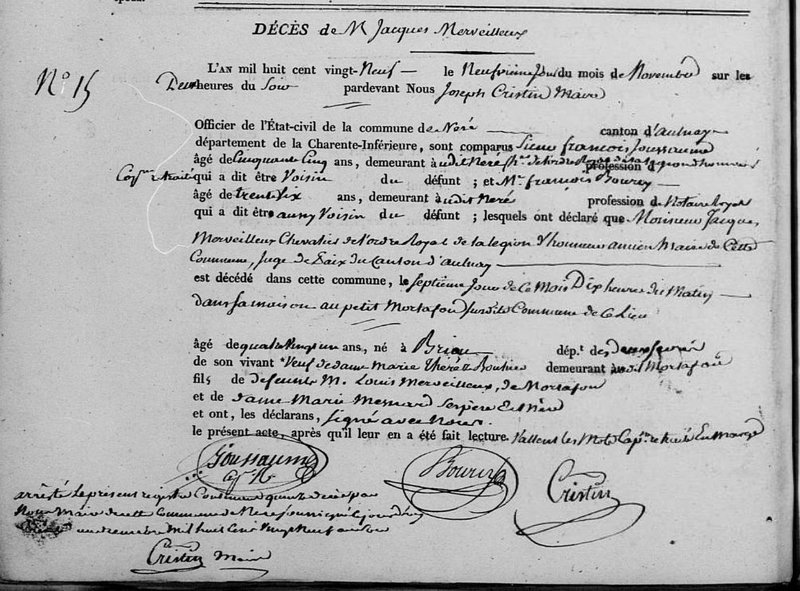 DÉCÈS de Mr Jacques Merveilleux
No 15
L'AN mil huit cent vingt-Neuf — le Neufvieme Jour du mois de Novembre sur les
Deux heures du Soir pardevant Nous Joseph Cristin Maire
Officier de l'État-civil de la commune de Neré canton d'Aulnay
département de la Charente-Inférieure, sont comparus Sieur francois Joussaume
âgé de Cinquante Cinq ans, demeurant à udit Neré profession d
Capne retraité
qui a dit être Voisin du défunt ; et Mr francois Bourcy
âgé de trente six ans, demeurant à udit Neré profession de Notaire Royal
qui a dit être aussy Voisin du défunt ; lesquels ont déclaré que Monsieur Jacques
Merveilleux Chevalier de l'ordre Royal de la legion d'honneur ancien Maire de Cette
Commune, Juge de Paix du Canton d'aulnay
est décédé dans cette commune, le Septieme Jour de Ce Mois Dix heures du Matin
dans sa maison au petit Mortafon Susdite Commune de Ce Lieu
âgé de quatre vingt un ans, né à Briou dép.t des deux Sevres
de son vivant Veuf de dame Marie Therese demeurant audit Mortafon
fils de defeunts M. Louis Merveilleux, de Mortafon
et de dame Marie Mesnard Ses père Et Mère
et ont, les déclarans, Signé avec Nous.
le présent acte, après qu'il leur en a été fait lecture. Vallent les Mots Capne retraité En Marge
Joussaume
Bourcy
Cristin
arrêté le present registre Contenant quinze décès par
Nous Maire de cette Commune de Neré soussigné
trente un decembre Mil huit Cent Vingt Neuf
Cristin Maire